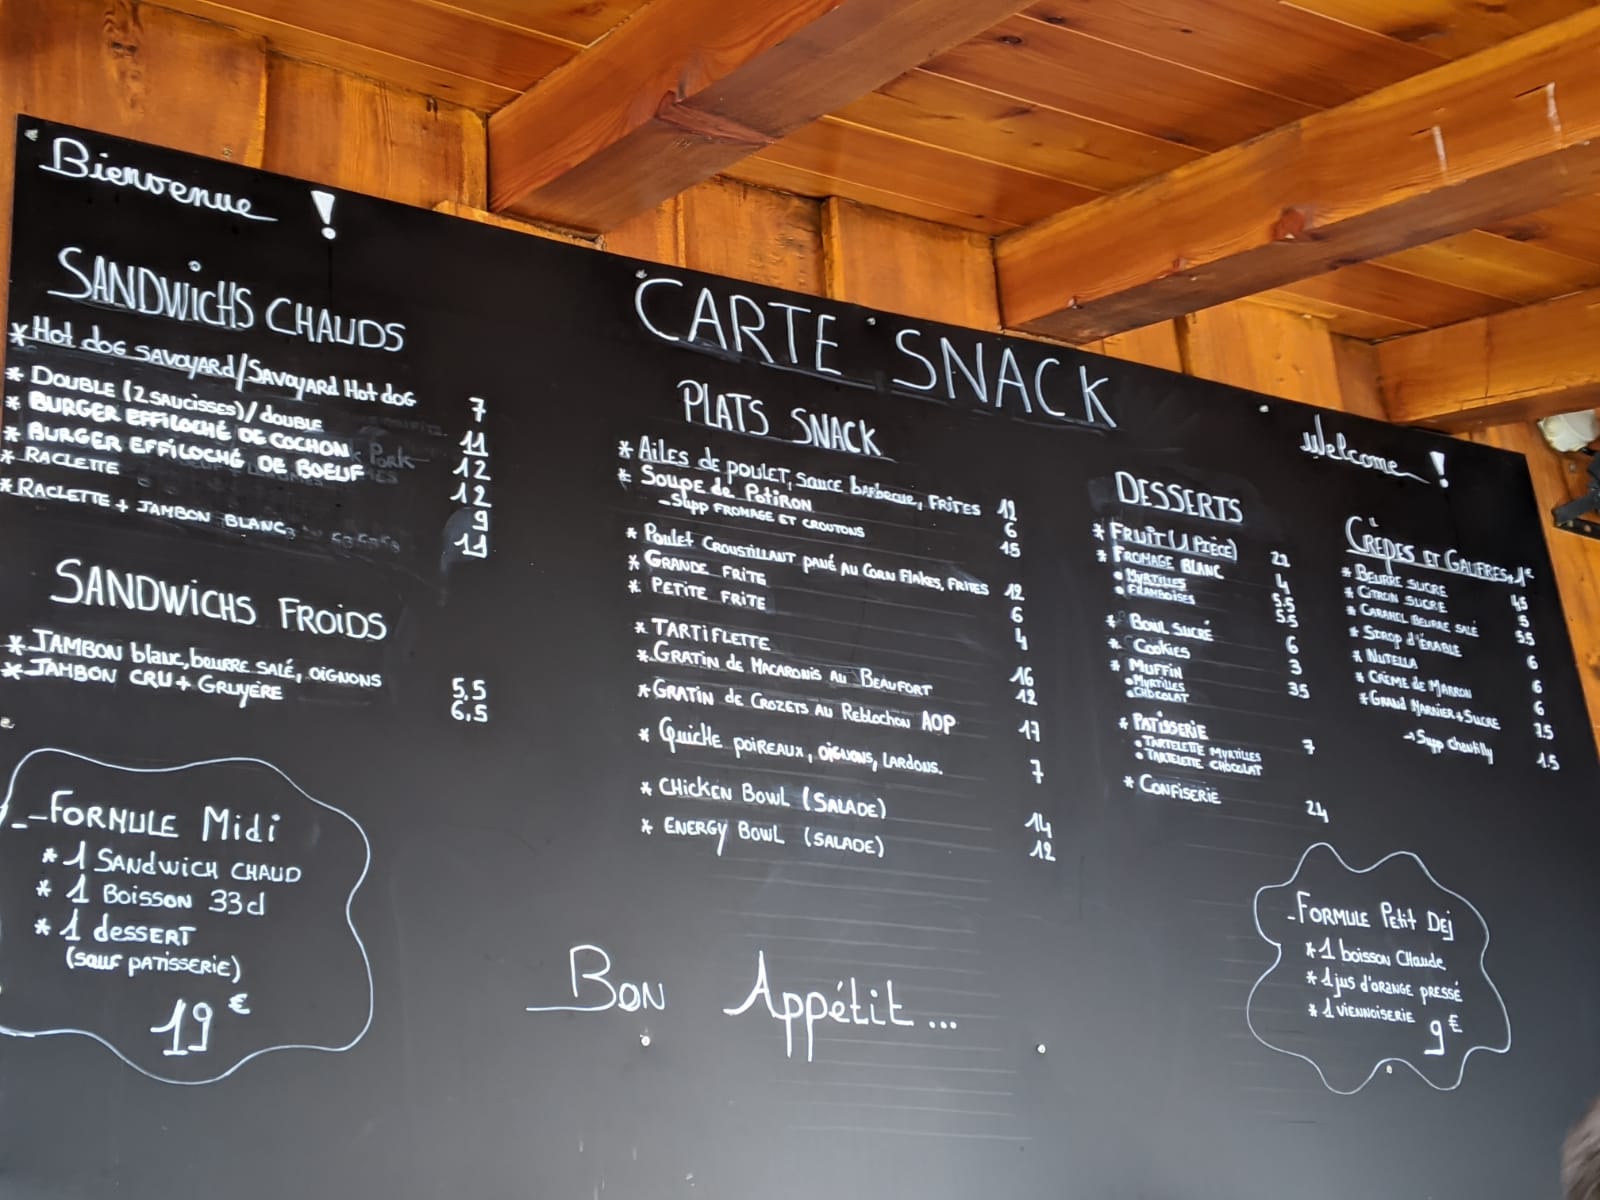 Bienvenue !
SANDWICHS CHAUDS
* Hot dOG SAVOYARD/SAVOYARD Hot doG 7
* DOUBLE (2 SAUCISSES)/ dOUBLE 11
* BURGER EFFILOCHÉ DE COCHON 12
* BURGER EFFILOCHÉ DE BOEUF 12
* RACLETTE 9
* RACLETTE + JAMBON BLANC 11
SANDWICHS FROIDS
* JAMBON blanc, beurre SALÉ, OIGNONS 5,5
* JAMBON CRU + GRUYÈRE 6,5
- FORMULE Midi
* 1 SANDWICH CHAUD
* 1 BOISSON 33cl
* 1 dESSERT
(sauf PATISSERIE)
19 €
CARTE SNACK
PLATS SNACK
* AILES de POULET, SAUCE barbecue, FRITES 12
* SOUPE de POTIRON 6
- SUPP FROMAGE ET CROUTONS
* Poulet CROUSTILLANT PANÉ AU CORN FLAKES, FRITES 12
* GRANDE FRITE 6
* PETITE FRITE 4
* TARTIFLETTE 16
* GRATIN de MACARONIS AU BEAUFORT 12
* GRATIN de CROZETS AU REBLOCHON AOP 17
* QUICHE POIREAUX, OIGNONS, LARDONS. 7
* CHICKEN BOWL (SALADE) 14
* ENERGY BOWL (SALADE) 12
BON Appétit...
Welcome !
DESSERTS
* FRUIT (1 PIÈCE)
* FROMAGE BLANC 4
• MYRTILLES 5.5
• FRAMBOISES 5.5
* BOWL SUCRÉ 6
* COOKIES 3
* MUFFIN 35
• MYRTILLES
• CHOCOLAT
* PATISSERIE 7
• TARTELETTE MYRTILLES
• TARTELETTE CHOCOLAT
* CONFISERIE
CRÊPES ET GAUFRES
* BEURRE SUCRE 4.5
* CITRON SUCRE 5
* CARAMEL BEURRE SALÉ 5.5
* SIROP d'ÉRABLE 6
* NUTELLA 6
* CRÈME de MARRON 6
* GRAND MARNIER + SUCRE 7.5
→ Supp chantilly 1.5
- FORMULE Petit Dej
* 1 boisson CHaude
* 1 jus d'orange pressé
* 1 VIENNOISERIE
9 €